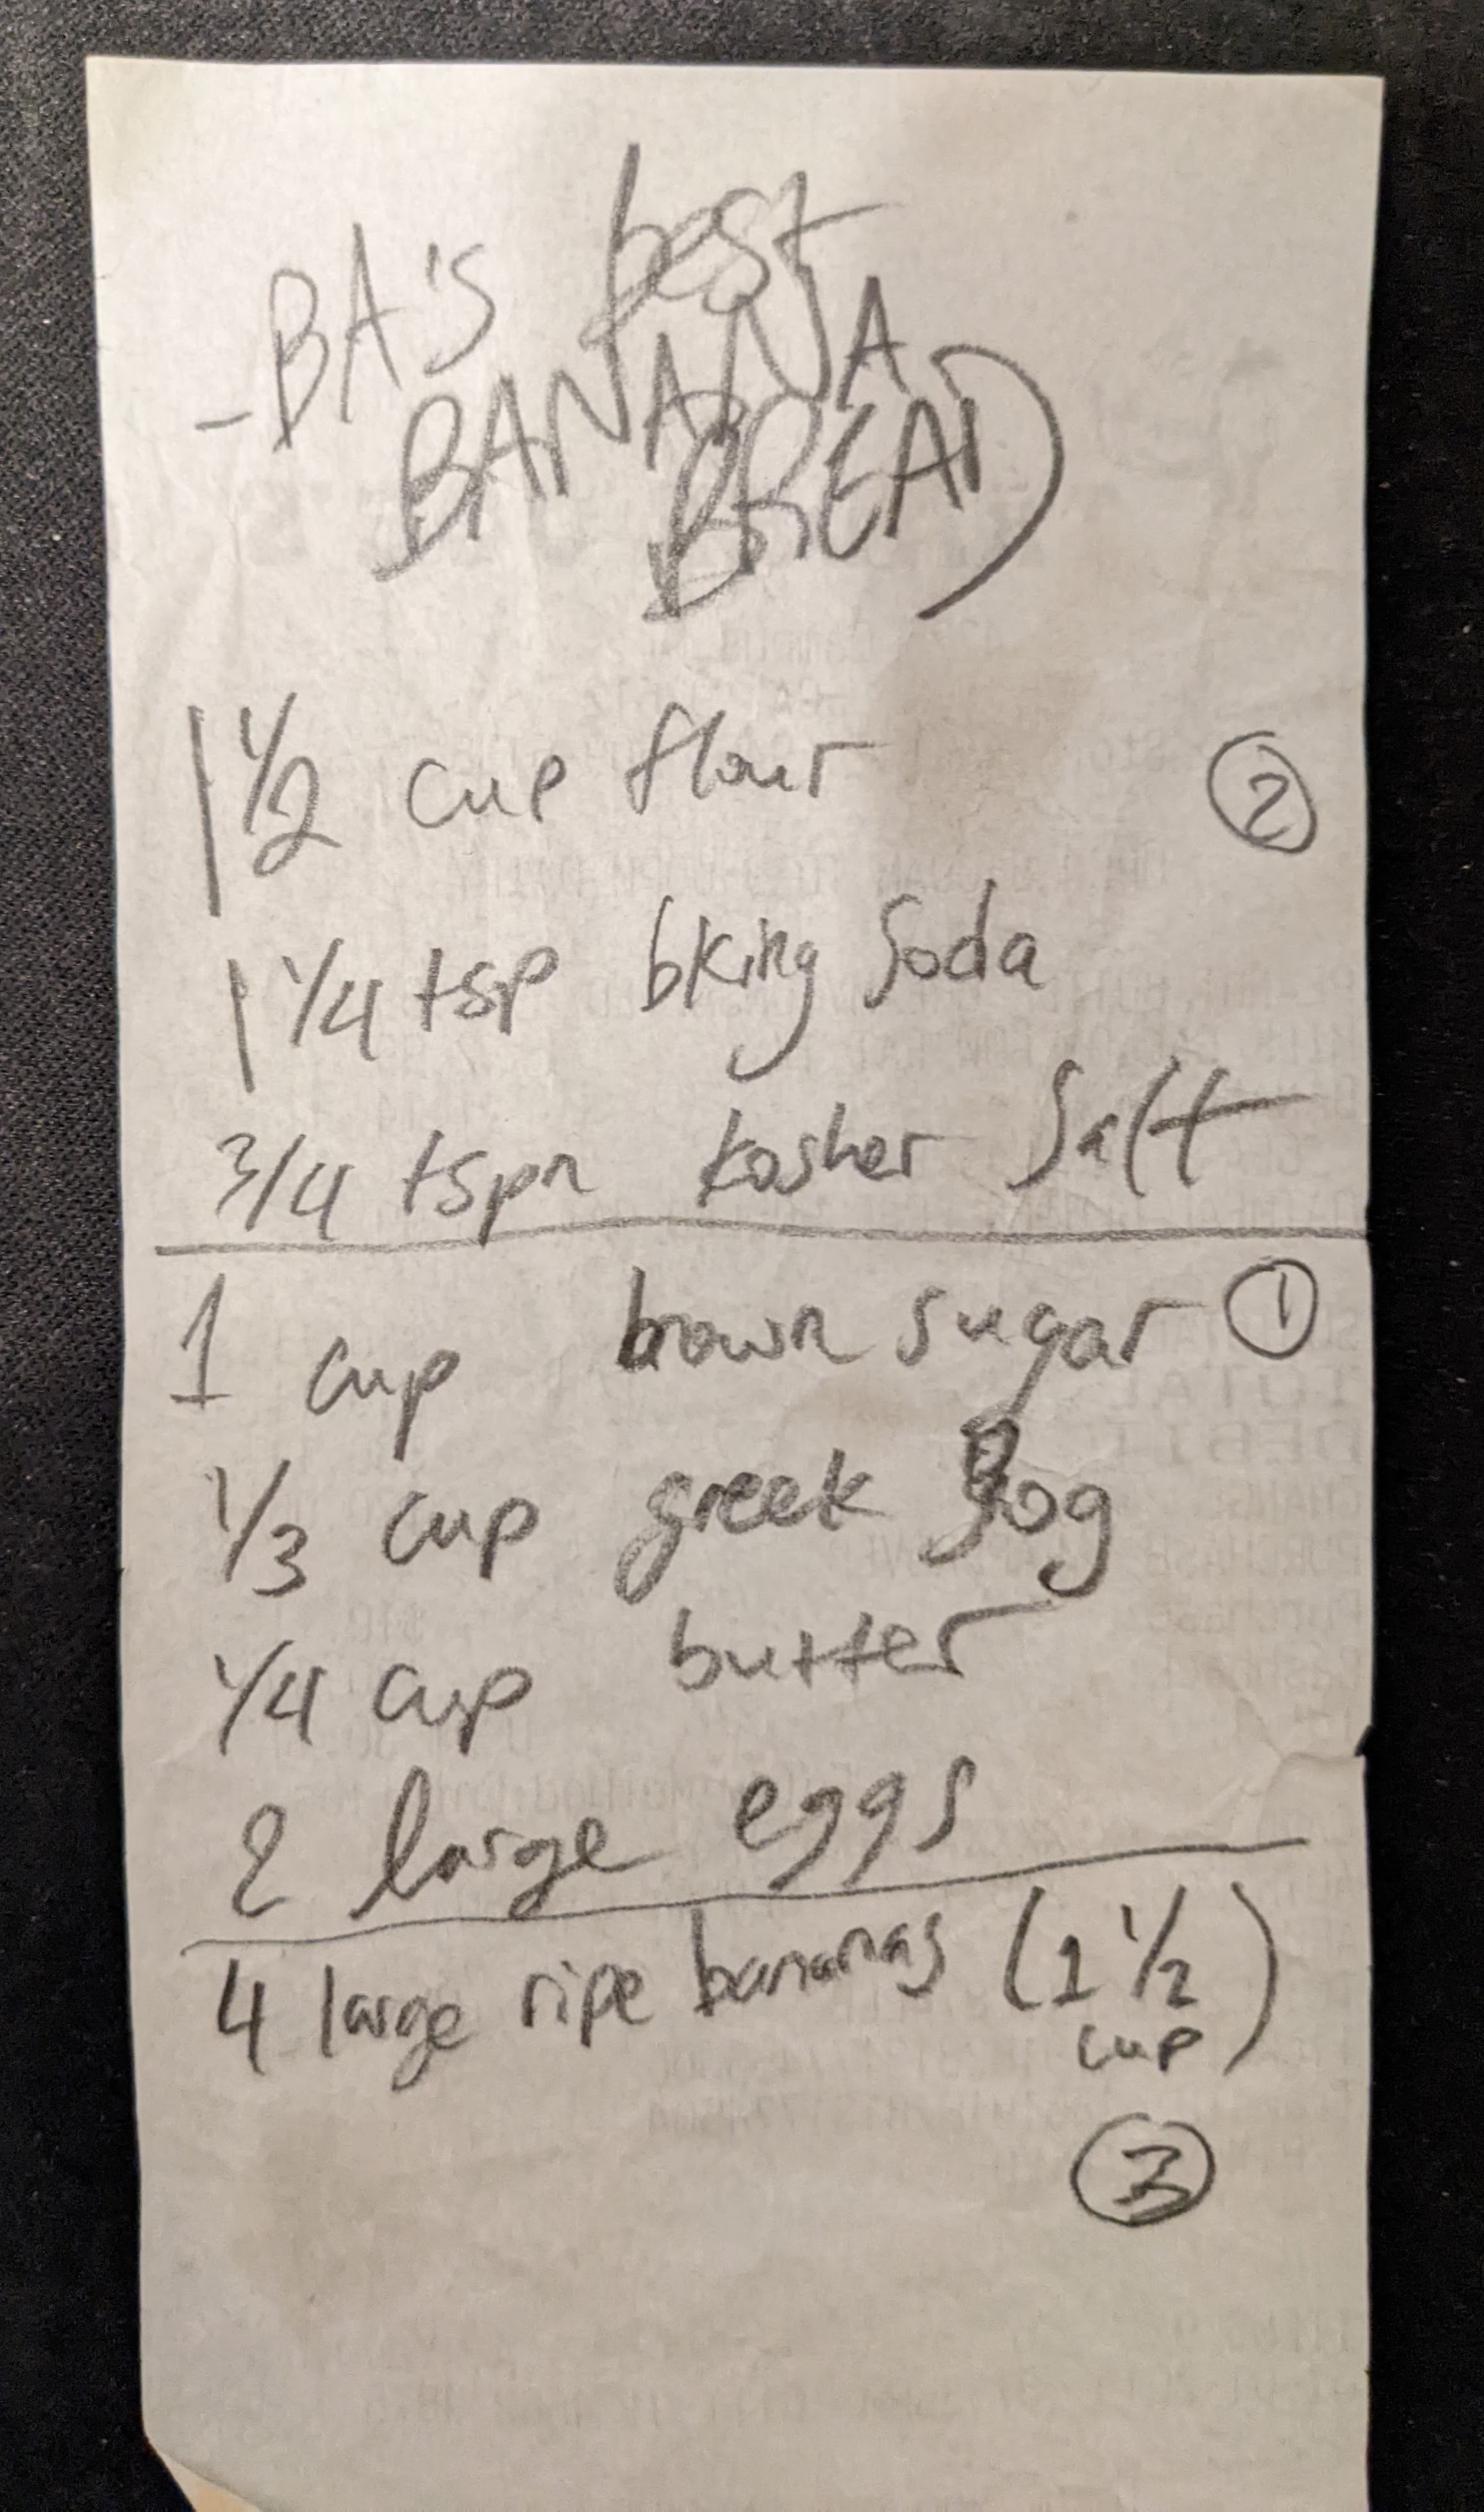 -BA'S best
BANANA
BREAD
1 1/2 cup flour ②
1 1/4 tsp bking Soda
3/4 tspn kosher Salt
1 cup brown sugar ①
1/3 cup greek yog
1/4 cup butter
2 large eggs
4 large ripe bananas (1 1/2
cup)
③